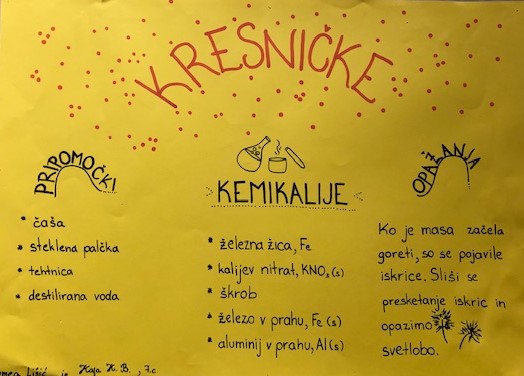 KRESNIČKE
PRIPOMOČKI
* čaša
* steklena palčka
* tehtnica
* destilirana voda
KEMIKALIJE
* železna žica, Fe
* kalijev nitrat, KNO₃(s)
* škrob
* železo v prahu, Fe(s)
* aluminij v prahu, Al(s)
OPAŽANJA
Ko je masa začela
goreti, so se pojavile
iskrice. Sliši se
presketanje iskric in
opazimo
svetlobo.
in Kaja K. B., 7.c